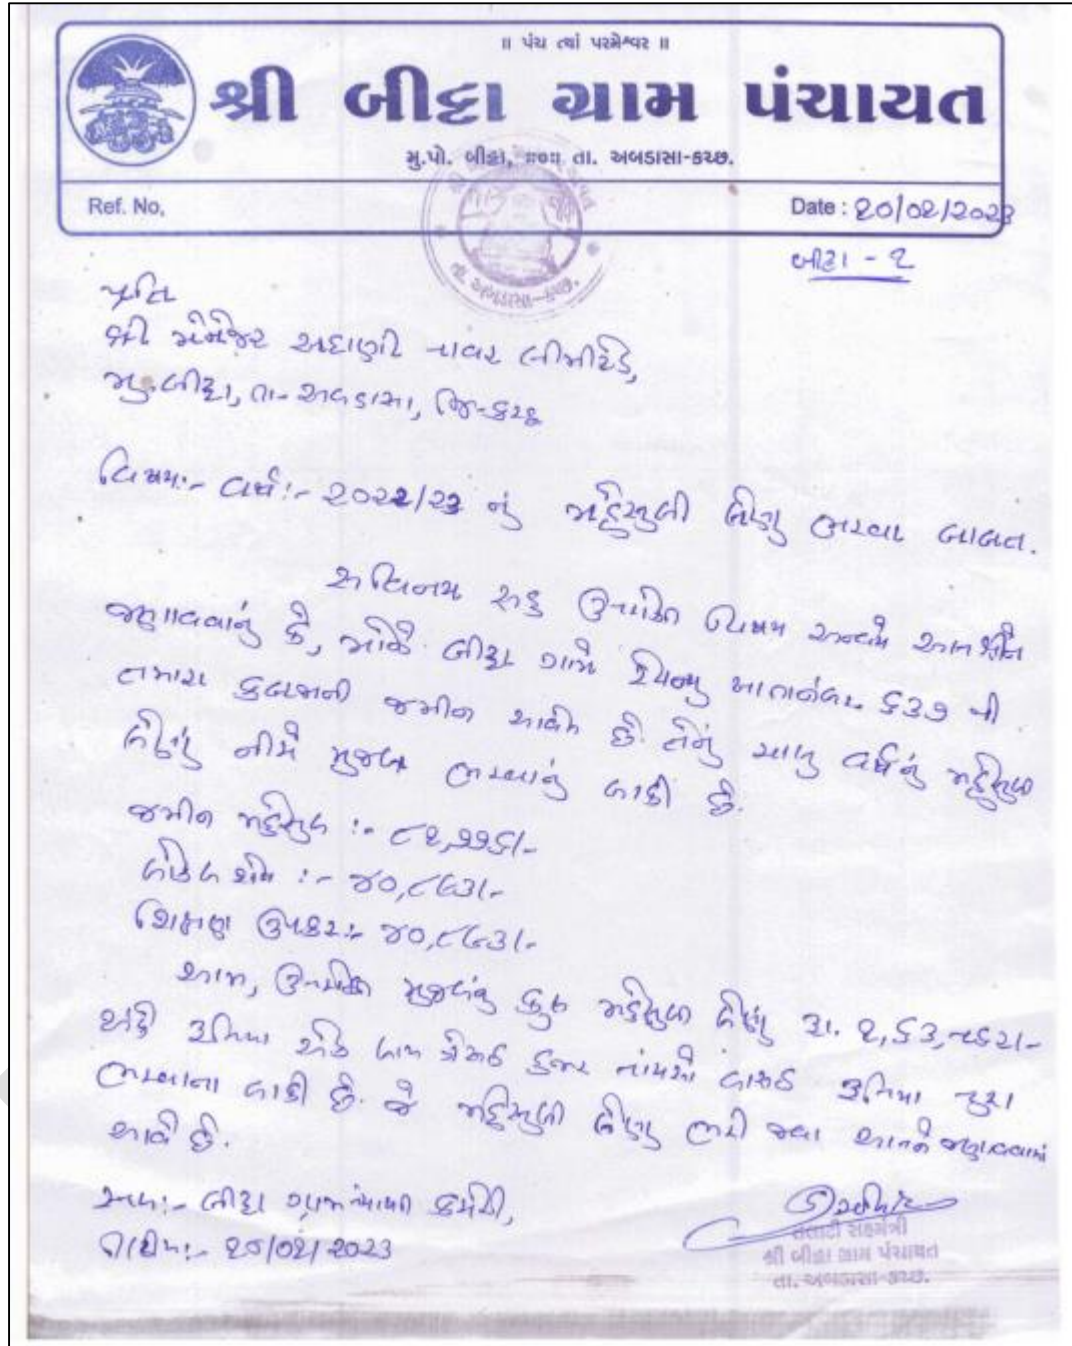 ॥ પંચ ત્યાં પરમેશ્વર ॥
શ્રી બીટ્ટા ગ્રામ પંચાયત
મુ.પો. બીટ્ટા, તા. અબડાસા-કચ્છ.
Ref. No,
Date : ૨૦/૦૨/૨૦૨૩
બીટ્ટા - ૨
પ્રતિ
શ્રી મેનેજર અદાણી પાવર લીમીટેડ,
મુ. બીટ્ટા, તા- અબડાસા, જિ-કચ્છ
વિષય:- વર્ષ:- ૨૦૨૨/૨૩ નું મહેસુલી લેણુ ભરવા બાબત.
સવિનય સહ ઉપરોક્ત વિષય અન્વયે આપશ્રીને
જણાવવાનું કે, મોજે બીટ્ટા ગામે રેવન્યુ ખાતાનંબર ૬૩૭ થી
તમારા કબજાની જમીન આવેલ છે. તેનું ચાલુ વર્ષનું મહેસુલ
લેણું નીચે મુજબ ભરવાનું બાકી છે.
જમીન મહેસુલ :- ૮૧,૭૭૬/-
લોકલ શેષ :- ૪૦,૮૯૩/-
શિક્ષણ ઉપકર:- ૪૦,૮૯૩/-
આમ, ઉપરોક્ત મુજબનું કુલ મહેસુલ લેણુ રૂા. ૧,૬૩,૫૬૨/-
અંકે રૂપિયા એક લાખ ત્રેસઠ હજાર પાંચસો બાસઠ રૂપિયા પુરા
ભરવાના બાકી છે. જે મહેસુલી લેણુ ભરી જવા આપને જણાવવામાં
આવે છે.
સ્થળ:- બીટ્ટા ગ્રામ પંચાયત કચેરી,
તારીખ:- ૨૦/૦૨/૨૦૨૩
તલાટી સહમંત્રી
શ્રી બીટ્ટા ગ્રામ પંચાયત
તા. અબડાસા-કચ્છ.